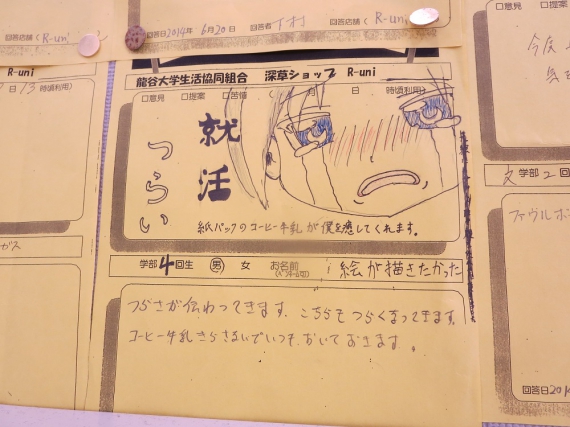 回答店舗 ( R-uni
回答日2014年 6月20日 回答者 下村 回答店舗 ( R-uni
R-uni
日13 時頃利用)
龍谷大学生活協同組合 深草ショップ R-uni
口意見 口提案 口苦情 ( 月 日 時頃利用)
就活
つらい
紙パックのコーヒー牛乳が僕を癒してくれます。
学部4回生 男 女 お名前 絵が描きたかった
(ペンネーム可)
つらさが伝わってきます。こちらもつらくなってきます。
コーヒー牛乳きらさないでいつもおいておきます。
口意見 口提案
今度
文学部2回
回答日2014